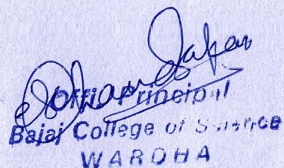 Offg. Principal
Bajaj College of Science
WARDHA